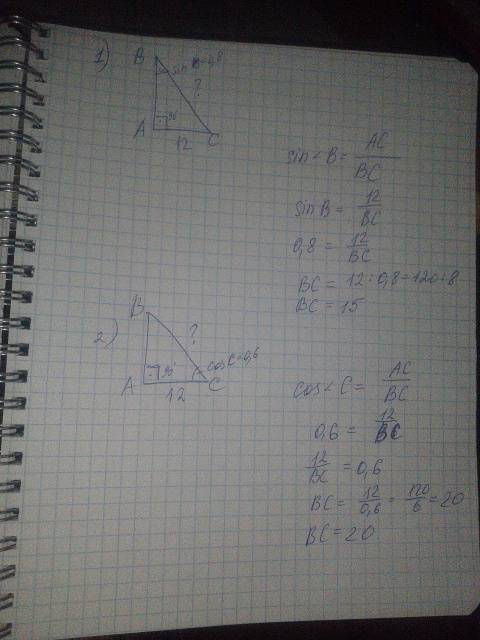 1)
B
sin B=0,8
?
A
90°
12
C
sin<B = AC/BC
sin B = 12/BC
0,8 = 12/BC
BC = 12:0,8=120:8
BC = 15
2)
B
?
cos C=0,6
A
90°
12
C
cos<C = AC/BC
0,6 = 12/BC
12/BC = 0,6
BC = 12/0,6 = 120/6 = 20
BC = 20